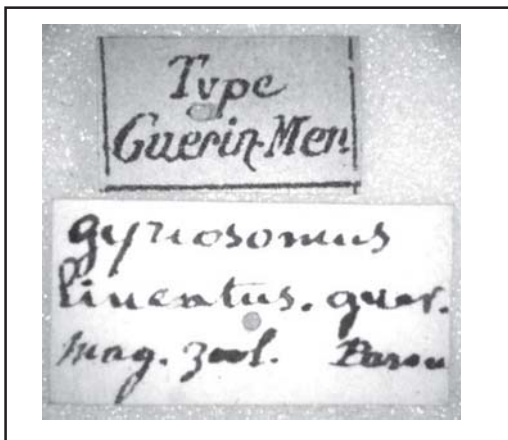 Type
Guerin-Men
Gyriosomus
lineatus. guer.
mag. zool.